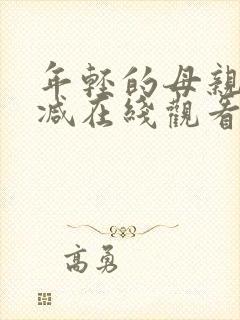 年輕的母親
减在綫觀看
高勇